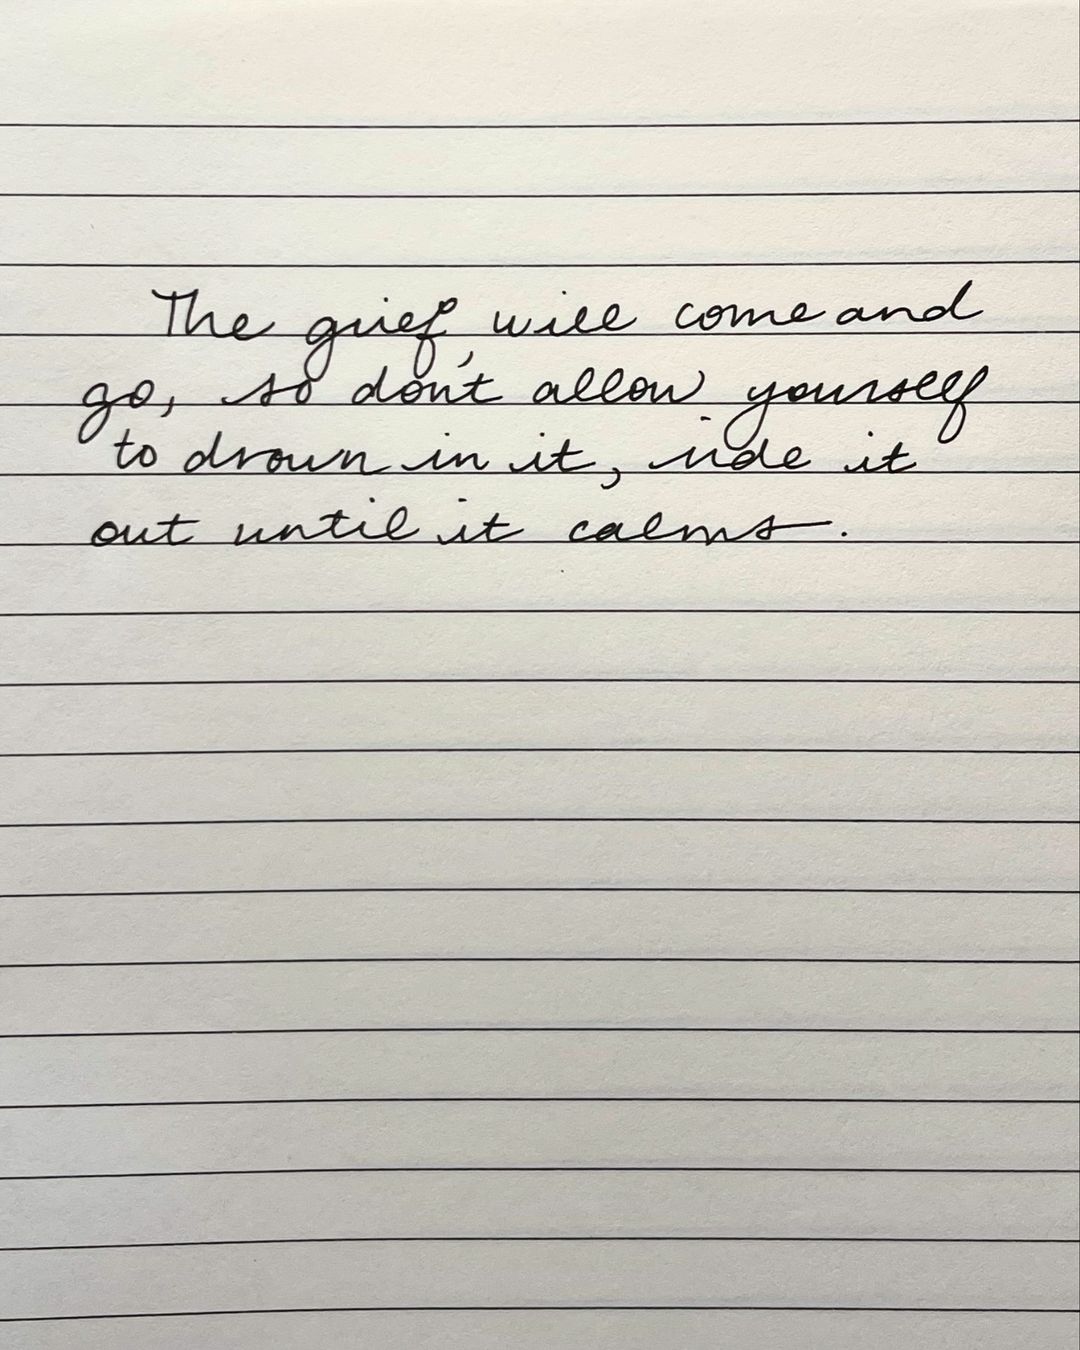 The grief will come and
go, so don't allow yourself
to drown in it, ride it
out until it calms.